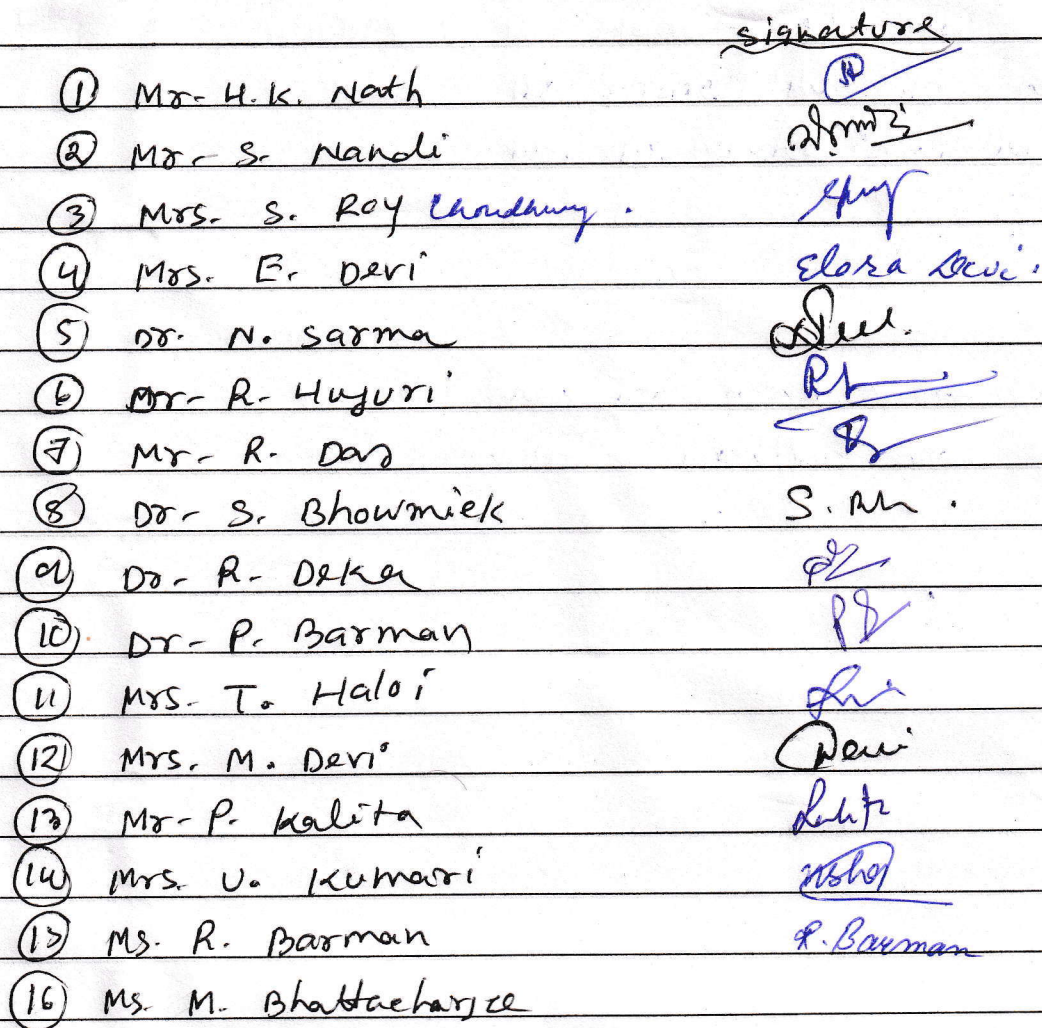 signature
1 Mr- H.K. Nath
2 Mr- S. Nandi
3 Mrs. S. Roy Choudhury.
4 Mrs. E. Devi Elora Devi.
5 Dr. N. Sarma
6 Mr- R. Hujuri
7 Mr- R. Das
8 Dr- S. Bhowmick
9 Dr- R- Deka
10 Dr- P. Barman
11 Mrs- T. Haloi
12 Mrs. M. Devi Devi
13 Mr- P. Kalita
14 Mrs. U. Kumari Usha
15 Ms. R. Barman R. Barman
16 Ms. M. Bhattacharjee